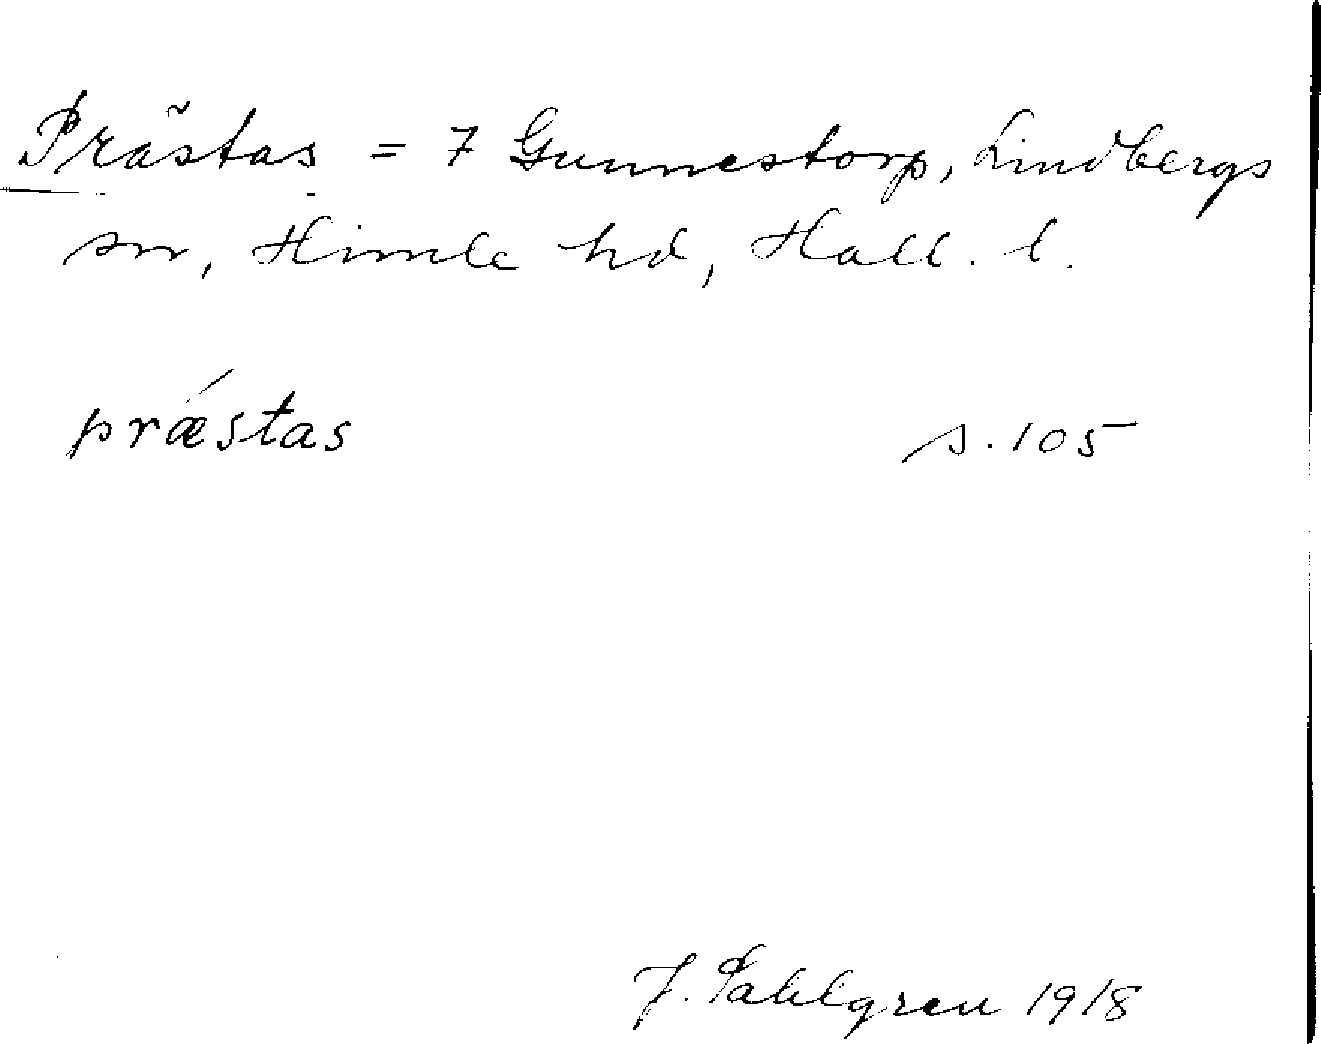 Prästas = 7 Gunnestorp, Lindbergs
sn, Himle hd, Hall. l.
prǽstas s. 105
J. Sahlgren 1918